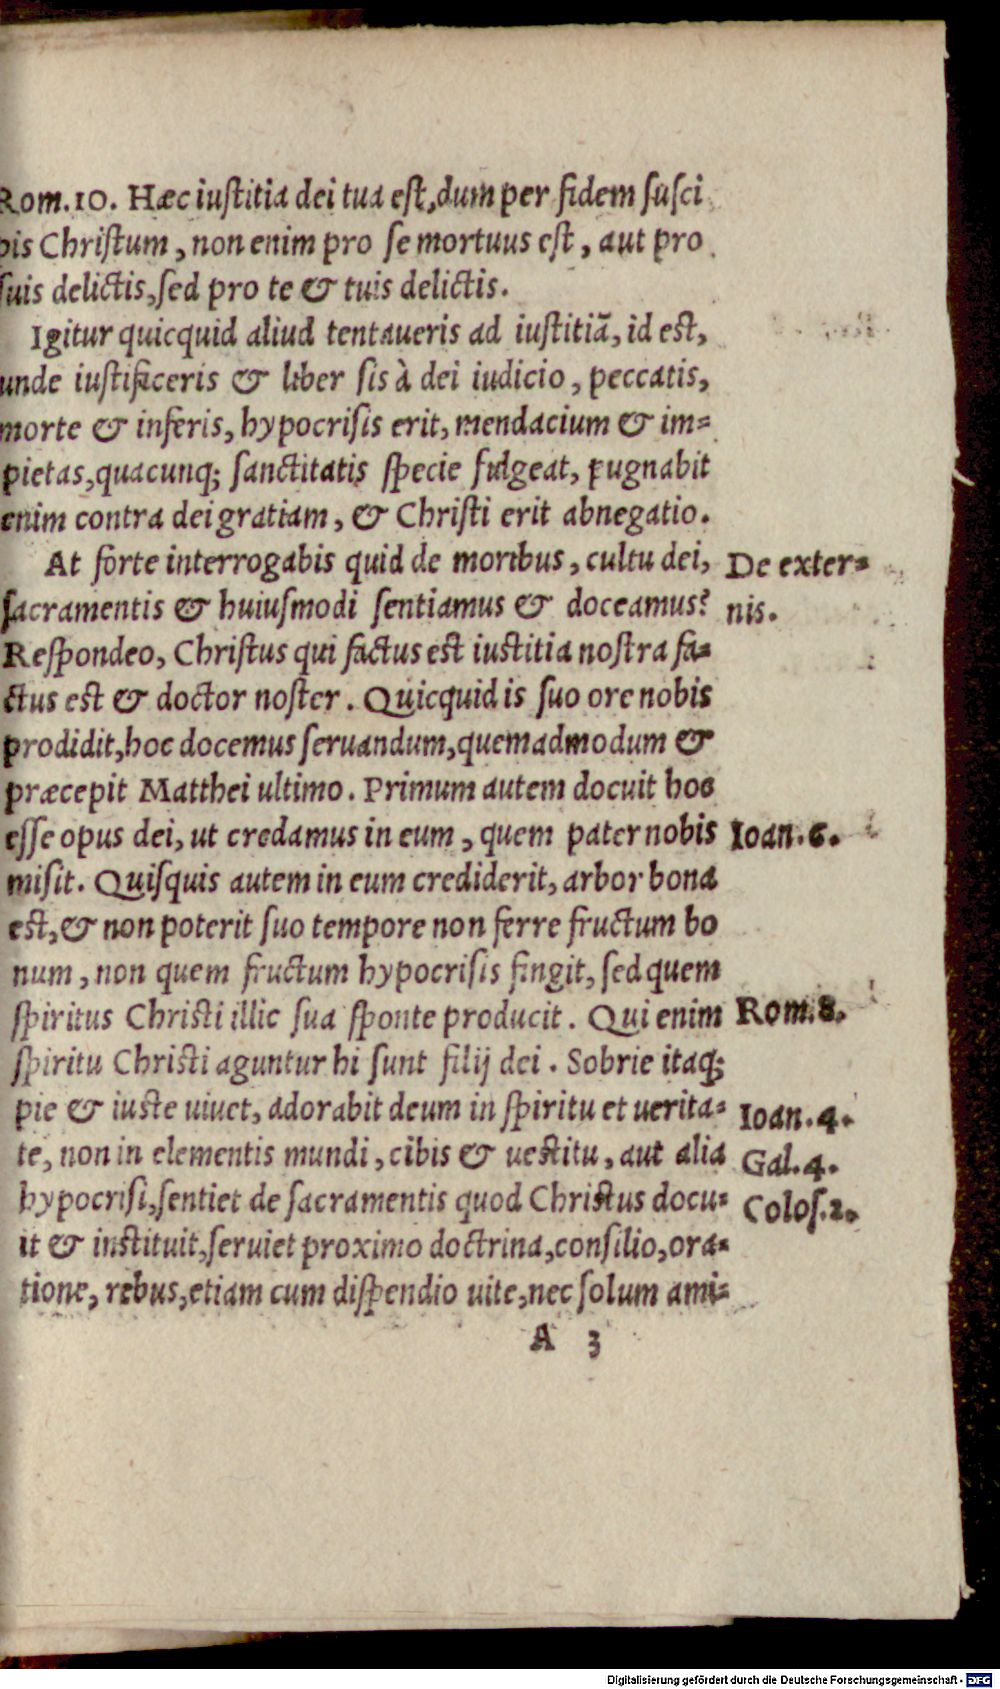 Rom.10. Hæc iuſtitia dei tua eſt, dum per fidem ſuſci
pis Chriſtum, non enim pro ſe mortuus eſt, aut pro
ſuis delictis, ſed pro te & tuis delictis.
Igitur quicquid aliud tentaueris ad iuſtitiā, id eſt,
unde iuſtificeris & liber ſis à dei iudicio, peccatis,
morte & inferis, hypocriſis erit, mendacium & im=
pietas, quacunq; ſanctitatis ſpecie fulgeat, pugnabit
enim contra dei gratiam, & Chriſti erit abnegatio.
At forte interrogabis quid de moribus, cultu dei,
De exter=
ſacramentis & huiuſmodi ſentiamus & doceamus?
nis.
Reſpondeo, Chriſtus qui factus est iustitia noſtra fa=
ctus est & doctor noſter. Quicquid is ſuo ore nobis
prodidit, hoc docemus ſeruandum, quemadmodum &
præcepit Matthei ultimo. Primum autem docuit hoc
eſſe opus dei, ut credamus in eum, quem pater nobis
Ioan.6.
miſit. Quiſquis autem in eum crediderit, arbor bona
est, & non poterit ſuo tempore non ferre fructum bo
num, non quem fructum hypocriſis fingit, ſed quem
ſpiritus Christi illic ſua ſponte producit. Qui enim
Rom.8.
ſpiritu Christi aguntur hi ſunt filij dei. Sobrie itaq;
pie & iuste uiuet, adorabit deum in ſpiritu et uerita=
Ioan.4.
te, non in elementis mundi, cibis & uestitu, aut alia
Gal.4.
hypocriſi, ſentiet de ſacramentis quod Christus docu=
Coloſ.2.
it & instituit, ſeruiet proximo doctrina, conſilio, ora=
tione, rebus, etiam cum diſpendio uite, nec ſolum ami=
A 3
Digitalisierung gefördert durch die Deutsche Forschungsgemeinschaft - DFG